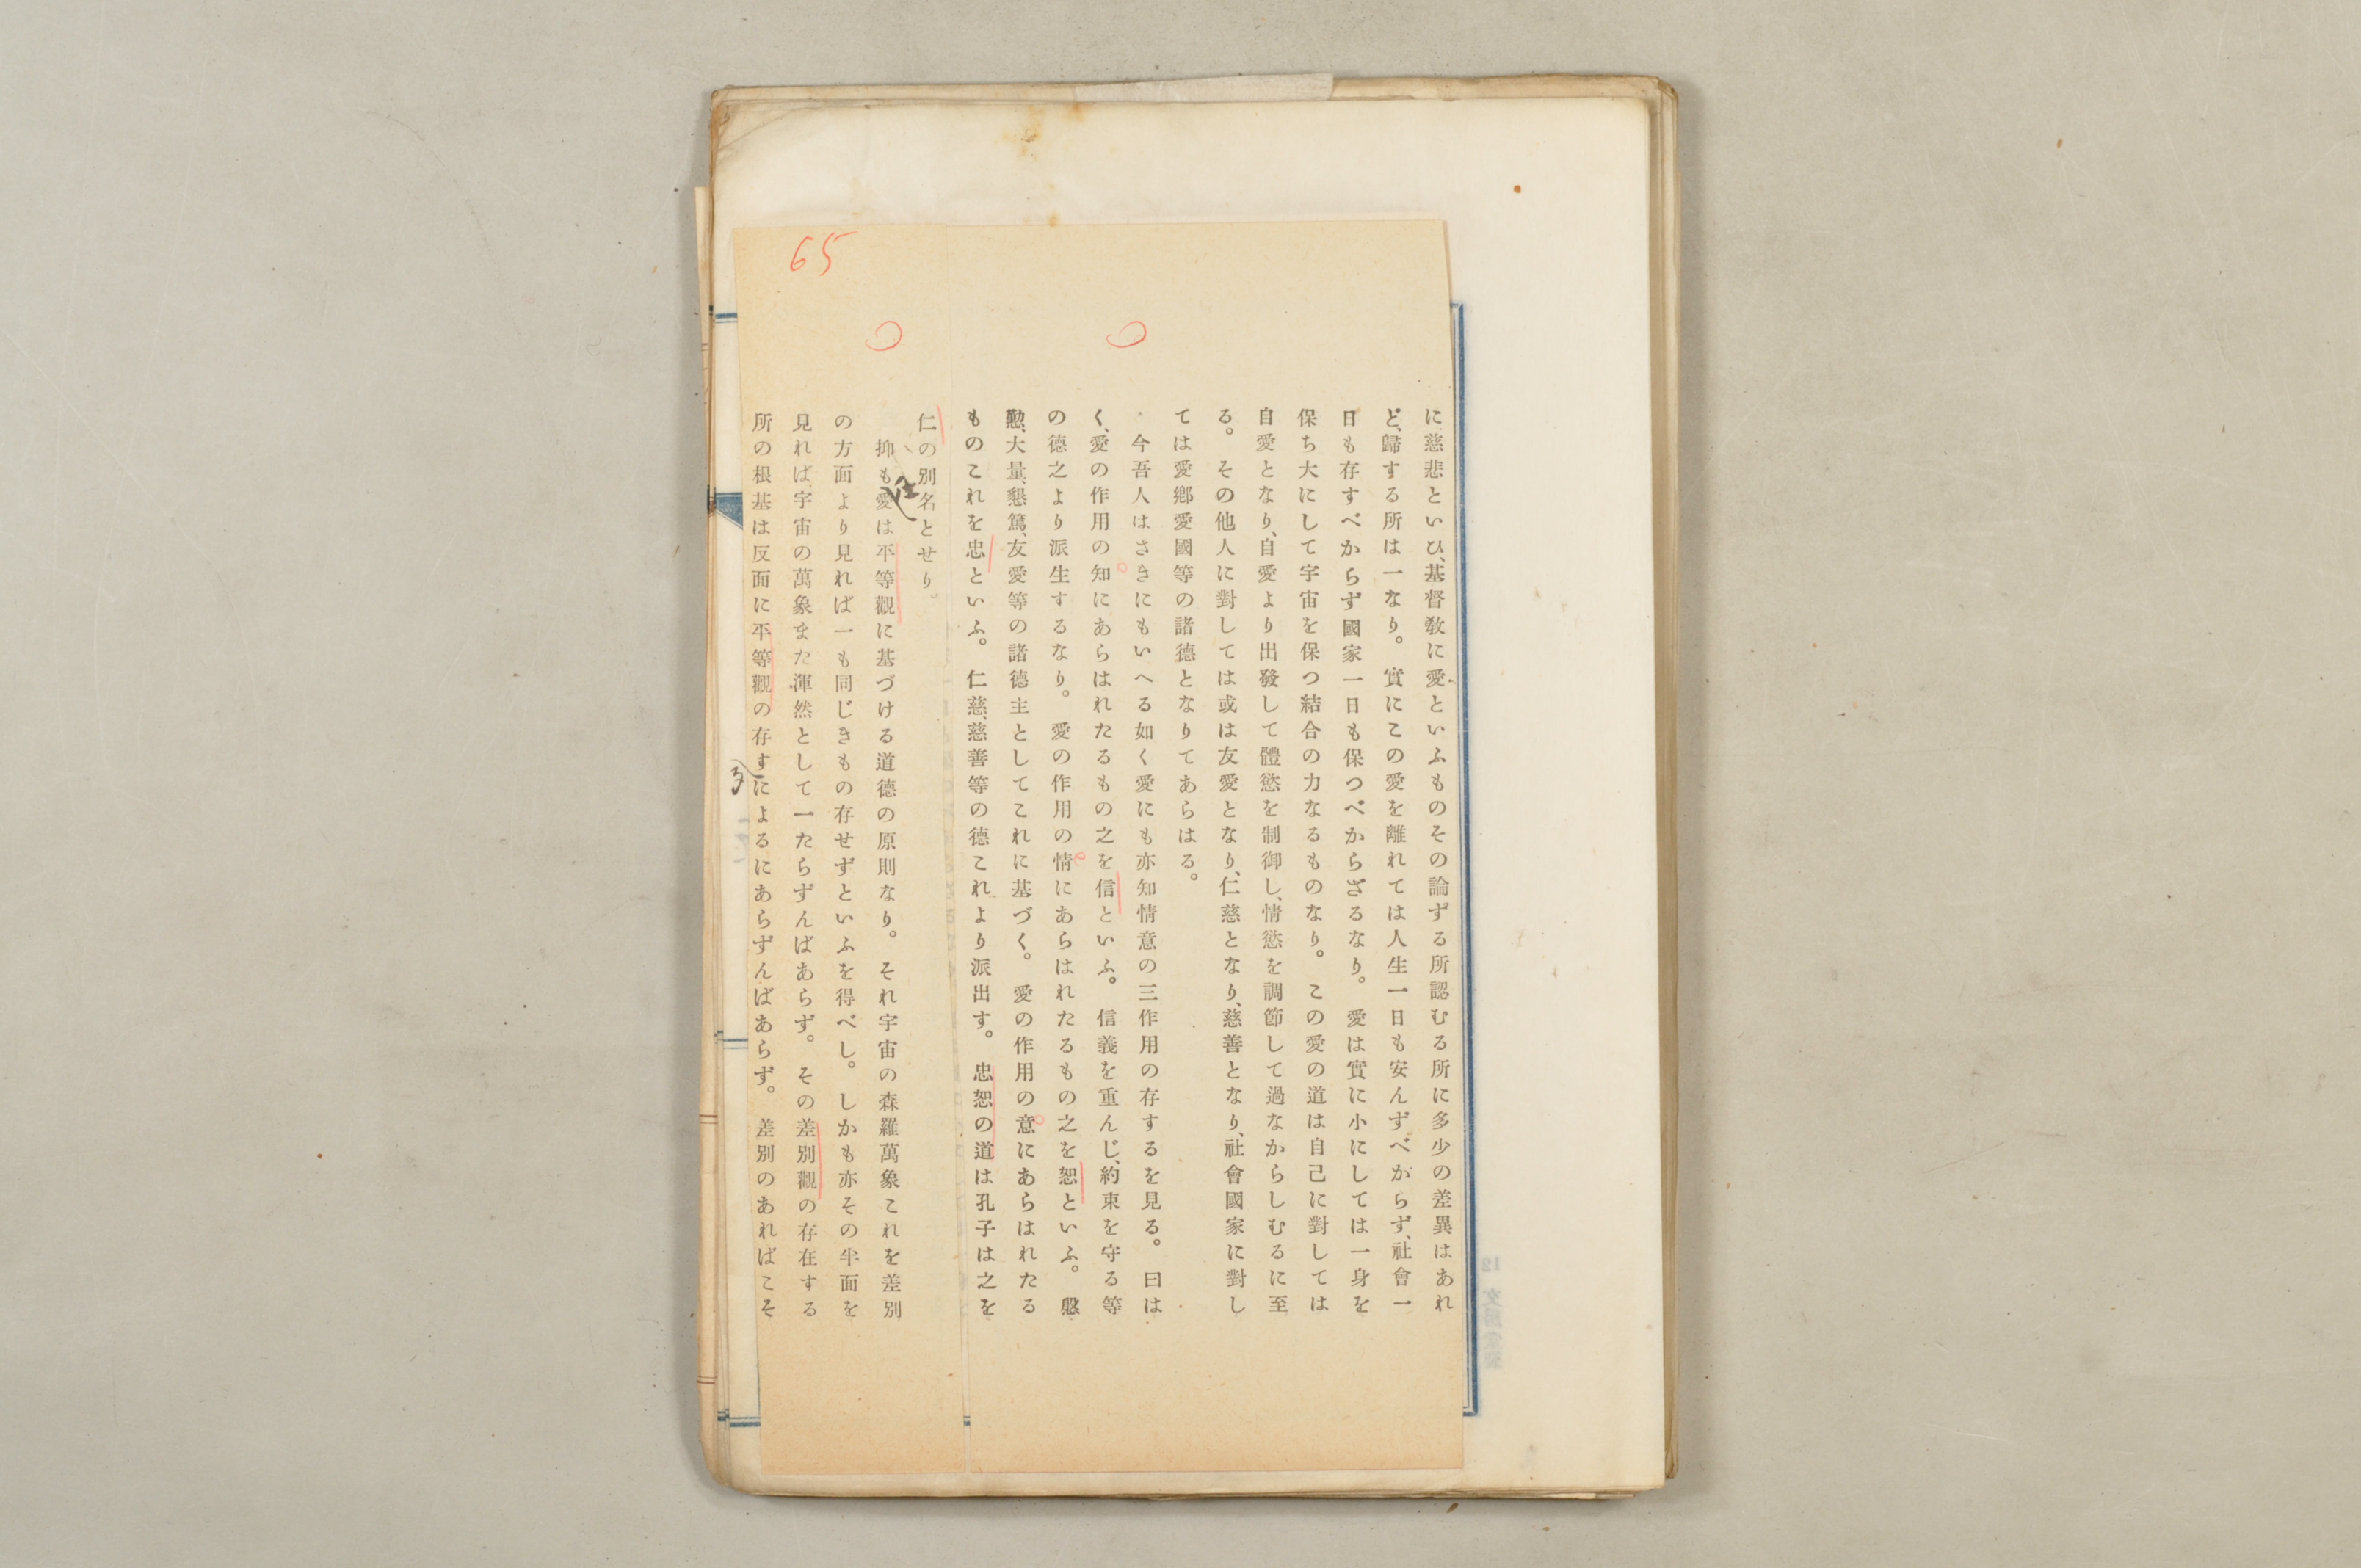 65
に慈悲といひ、基督敎に愛といふものその論ずる所認むる所に多少の差異はあれ
ど、歸する所は一なり。實にこの愛を離れては人生一日も安んずべからず、社會一
日も存すべからず國家一日も保つべからざるなり。愛は實に小にしては一身を
保ち大にして宇宙を保つ結合の力なるものなり。この愛の道は自己に對しては
自愛となり、自愛より出發して體慾を制御し、情慾を調節して過なからしむるに至
る。その他人に對しては或は友愛となり、仁慈となり、慈善となり、社會國家に對し
ては愛鄕愛國等の諸德となりてあらはる。
今吾人はさきにもいへる如く愛にも亦知情意の三作用の存するを見る。曰は
く、愛の作用の知にあらはれたるもの之を信といふ。信義を重んじ、約束を守る等
の德之より派生するなり。愛の作用の情にあらはれたるもの之を恕といふ。慇
懃、大量、懇篤、友愛等の諸德主としてこれに基づく。愛の作用の意にあらはれたる
ものこれを忠といふ。仁慈、慈善等の德これより派出す。忠恕の道は孔子は之を
仁の別名とせり。
抑も愛は平等觀に基づける道德の原則なり。それ宇宙の森羅萬象これを差別
の方面より見れば一も同じきもの存せずといふを得べし。しかも亦その半面を
見れば、宇宙の萬象また渾然として一たらずんばあらず。その差別觀の存在する
所の根基は反面に平等觀の存すによるにあらずんばあらず。差別のあればこそ